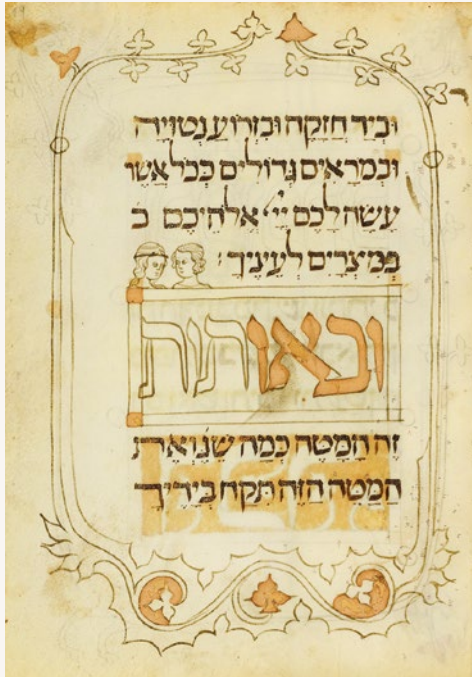 וביד חזקה ובזרוע נטויה
ובמראים גדולים ככל אשר
עשה לכם יי' אלהיכם כ
במצרים לעיניך:
ובאותות
זה המטה כמה שנ' ואת
המטה הזה תקח בידיך